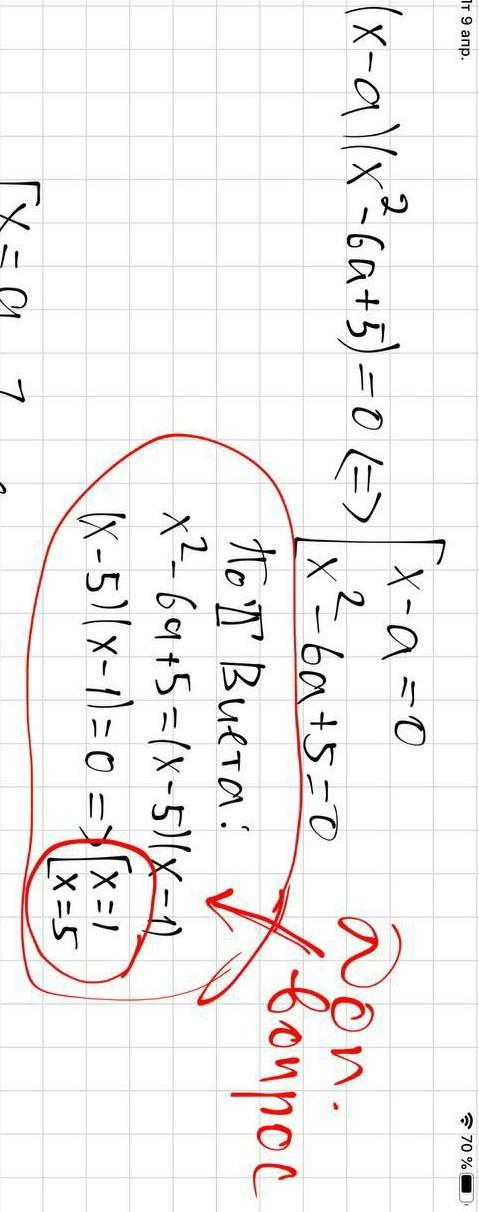 Пт 9 апр.
70 %
(x-a)(x²-6a+5)=0 <=> [x-a=0
x²-6a+5=0
По Т Виета:
x²-6a+5=(x-5)(x-1)
(x-5)(x-1)=0 => [x=1
x=5
вопрос
[x=a